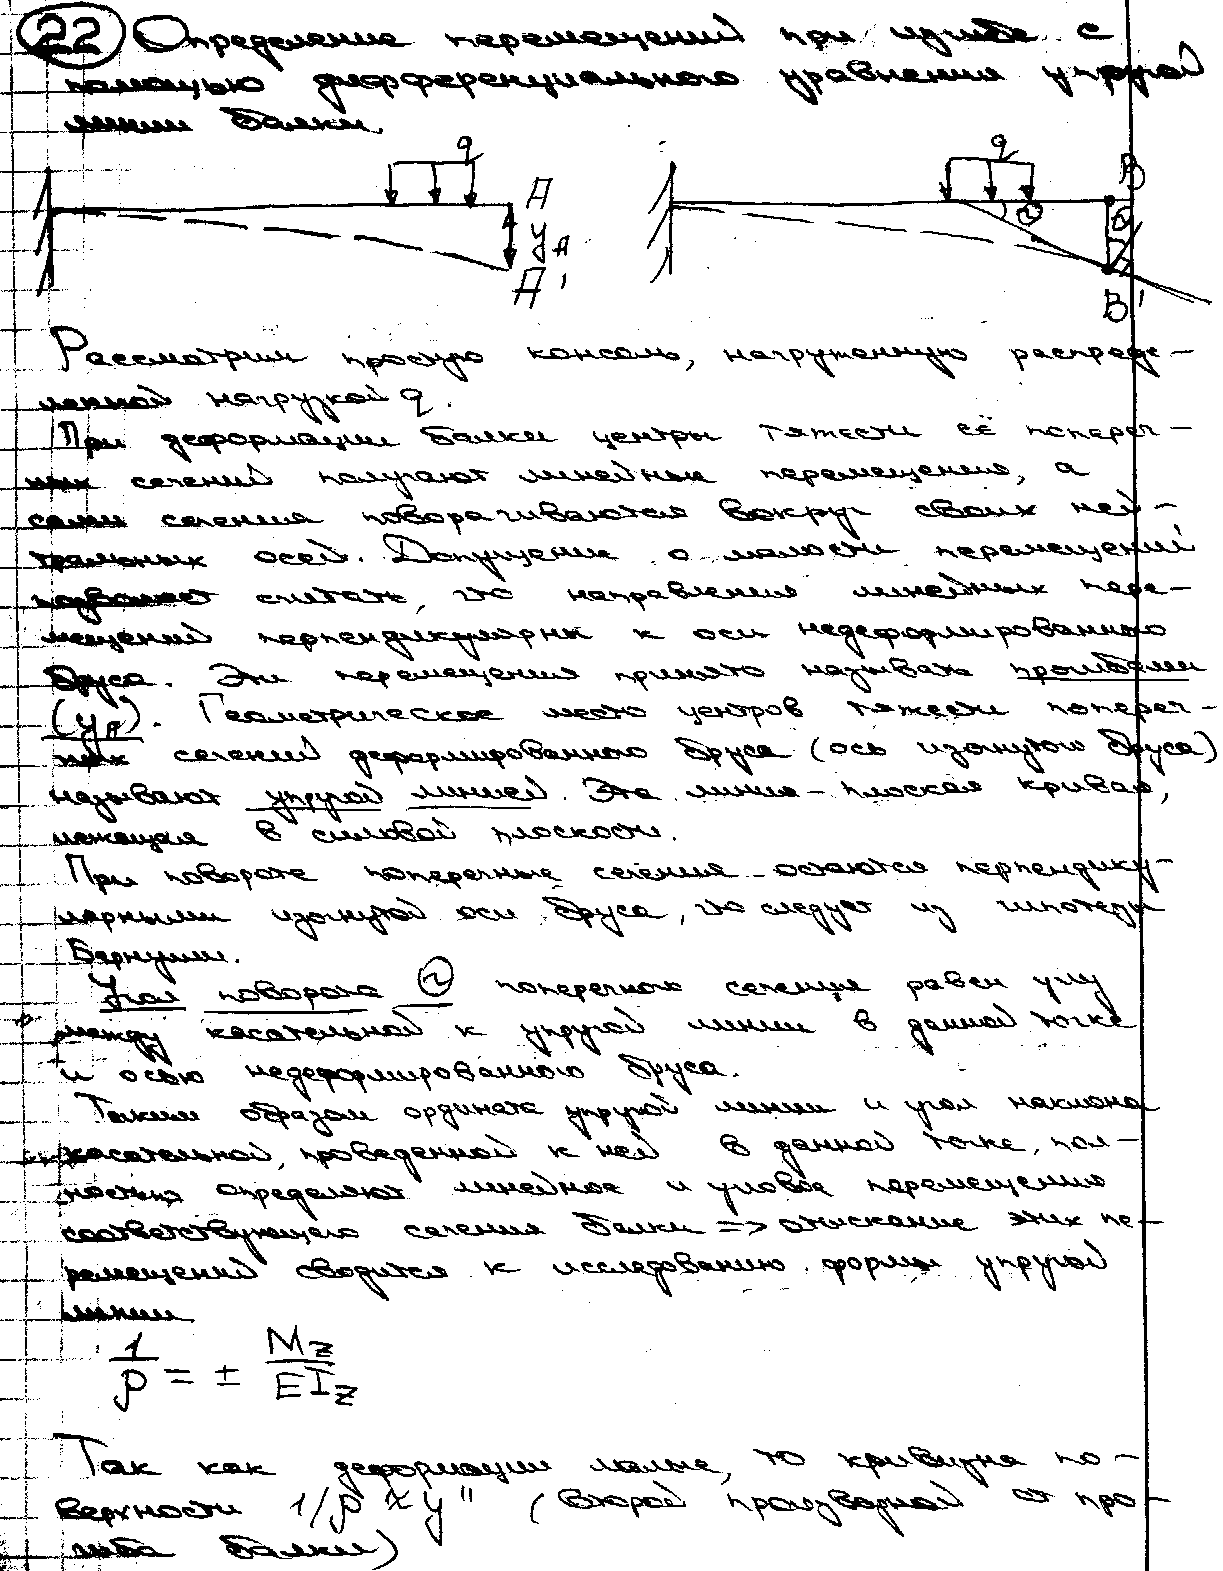 22 Определение перемещений при изгибе с
помощью дифференциального уравнения упругой
линии балки.
q q
A B
yA
A' B'
Рассмотрим простую консоль, нагруженную распреде-
ленной нагрузкой q.
При деформации балки центры тяжести её попереч-
ных сечений получают линейные перемещения, а
сами сечения поворачиваются вокруг своих ней-
тральных осей. Допущение о малости перемещений
позволяет считать, что направления линейных пере-
мещений перпендикулярны к оси недеформированного
бруса. Эти перемещения принято называть прогибами
(yA). Геометрическое место центров тяжести попереч-
ных сечений деформированного бруса (ось изогнутого бруса)
называют упругой линией. Эта линия - плоская кривая,
лежащая в силовой плоскости.
При повороте поперечные сечения остаются перпендику-
лярными изогнутой оси бруса, что следует из гипотезы
Бернулли.
Угол поворота поперечного сечения равен углу
между касательной к упругой линии в данной точке
и осью недеформированного бруса.
Таким образом ордината упругой линии и угол наклона
касательной, проведенной к ней в данной точке, пол-
ностью определяют линейное и угловое перемещения
соответствующего сечения балки => отыскание этих пе-
ремещений сводится к исследованию формы упругой
линии
1/ρ = ± Mz/EIz
Так как деформации малые, то кривизна по-
верхности 1/ρ ≈ y'' (второй производной от про-
гиба балки)